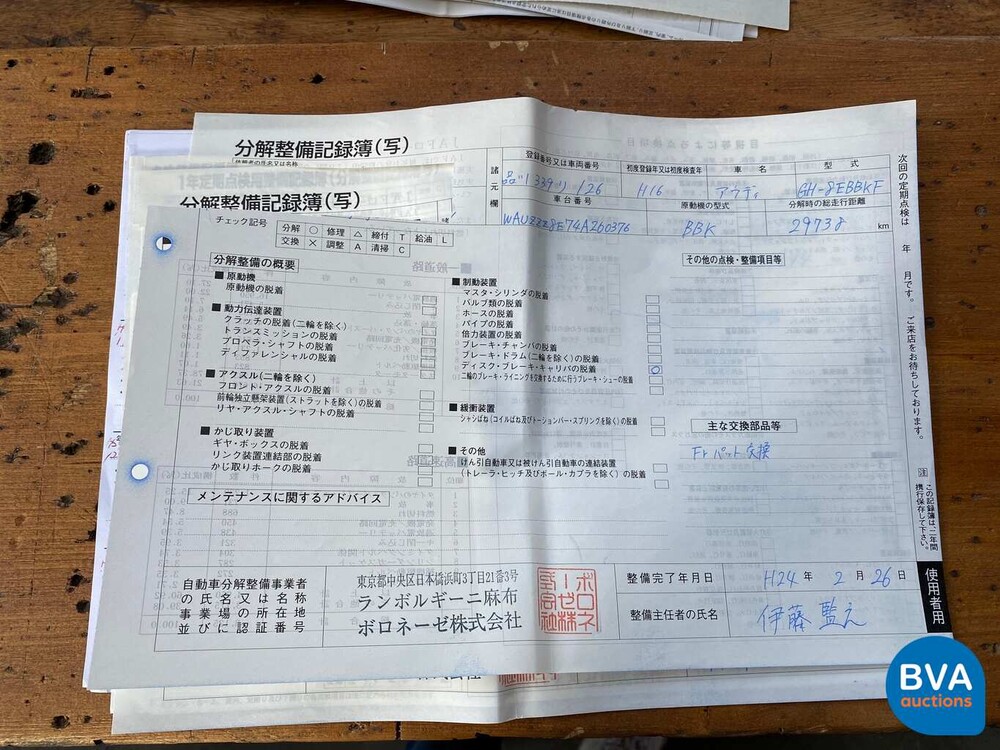 分解整備記録簿(写)
依頼者の氏名又は名称
分解整備記録簿(写)
諸元欄
登録番号又は車両番号
初度登録年又は初度検査年
車 名
型 式
品川 339 り 126
H16
アウディ
GH-8EBBKF
車台番号
原動機の型式
分解時の総走行距離
WAUZZZ8E74A260376
BBK
29738 km
チェック記号
分解 ○ 修理 △ 締付 T 給油 L
交換 × 調整 A 清掃 C
分解整備の概要
■ 原動機
原動機の脱着
■ 動力伝達装置
クラッチの脱着(二輪を除く)
トランスミッションの脱着
プロペラ・シャフトの脱着
ディファレンシャルの脱着
■ アクスル(二輪を除く)
フロント・アクスルの脱着
前輪独立懸架装置(ストラットを除く)の脱着
リヤ・アクスル・シャフトの脱着
■ かじ取り装置
ギヤ・ボックスの脱着
リンク装置連結部の脱着
かじ取りホークの脱着
■ 制動装置
マスタ・シリンダの脱着
バルブ類の脱着
ホースの脱着
パイプの脱着
倍力装置の脱着
ブレーキ・チャンバの脱着
ブレーキ・ドラム(二輪を除く)の脱着
ディスク・ブレーキ・キャリパの脱着
○
二輪のブレーキ・ライニングを交換するために行うブレーキ・シューの脱着
■ 緩衝装置
シャシばね(コイルばね及びトーションバー・スプリングを除く)の脱着
■ その他
けん引自動車又は被けん引自動車の連結装置
(トレーラ・ヒッチ及びボール・カプラを除く)の脱着
その他の点検・整備項目等
主な交換部品等
Fr パット 交換
メンテナンスに関するアドバイス
自動車分解整備事業者
の氏名又は名称
事業場の所在地
並びに認証番号
東京都中央区日本橋浜町3丁目21番3号
ランボルギーニ麻布
ボロネーゼ株式会社
整備完了年月日
H24 年 2 月 26 日
整備主任者の氏名
次回の定期点検は 年 月です。ご来店をお待ちしております。
注 この記録簿は、二年間
携行保存して下さい。
使用者用
BVA
auctions